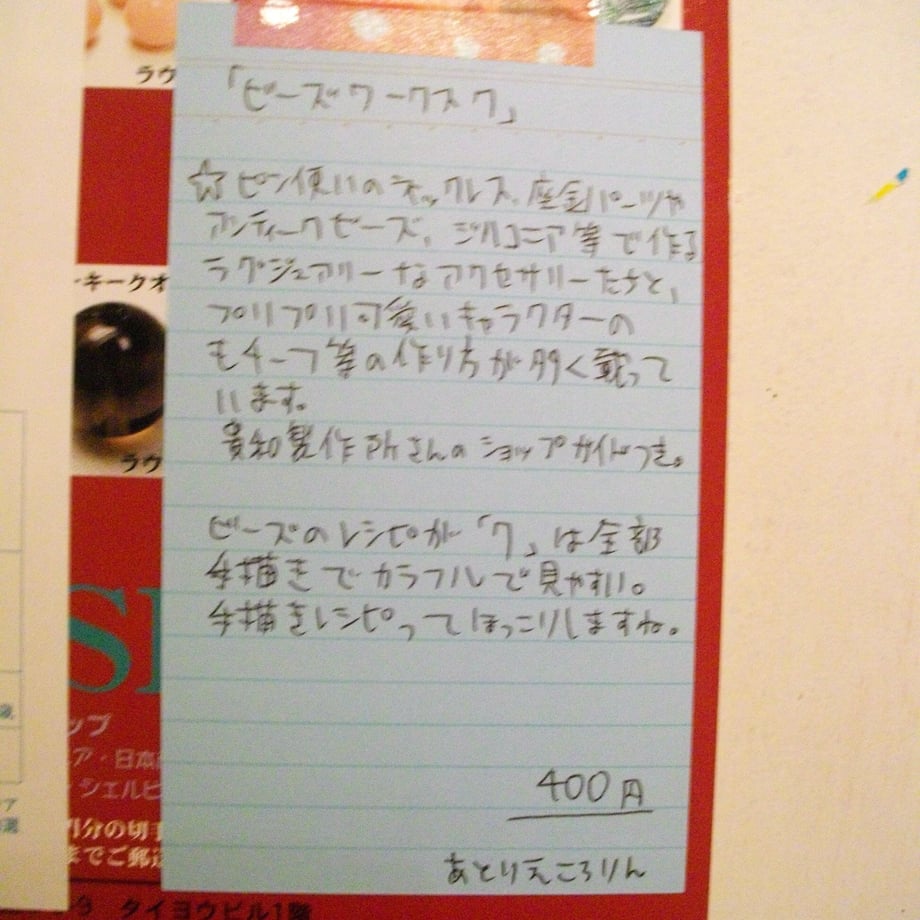 「ビーズワークス7」
☆ピン使いのネックレス、座金パーツや
アンティークビーズ、ジルコニア等で作る
ラグジュアリーなアクセサリーたちと、
プリプリ可愛いキャラクターの
モチーフ等の作り方が多く載って
います。
貴和製作所さんのショップガイドつき。
ビーズのレシピが「7」は全部
手描きでカラフルで見やすい。
手描きレシピってほっこりしますね。
400円
あとりえころりん
ラウ
ーキークオ
ラウ
ップ
ア・日本
シェルビ
円分の切手
までご郵送
-9 タイヨウビル1階